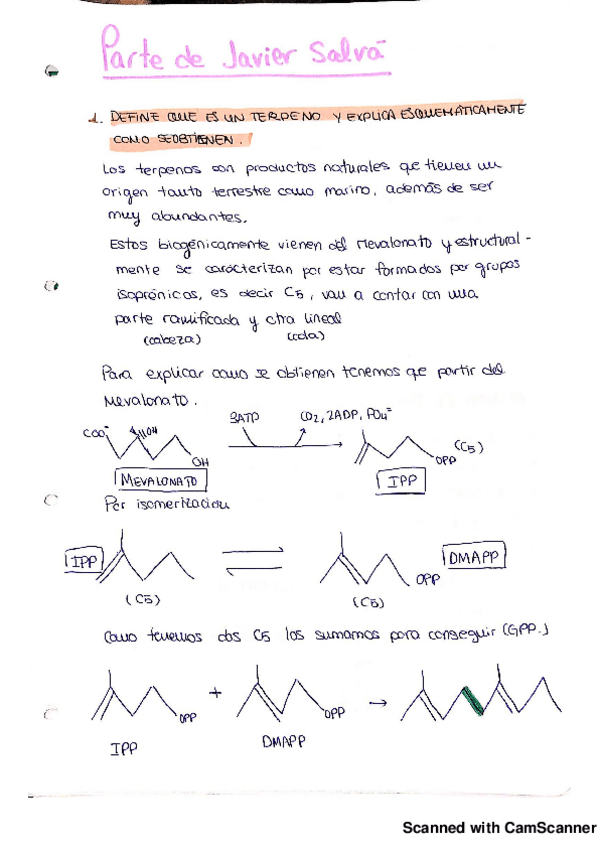 Parte de Javier Salvá
1. DEFINE QUE ES UN TERPENO Y EXPLICA ESQUEMÁTICAMENTE
COMO SE OBTIENEN.
Los terpenos son productos naturales que tienen un
origen tanto terrestre como marino, además de ser
muy abundantes.
Estos biogénicamente vienen del Mevalonato y estructural-
mente se carácterizan por estar formados por grupos
isoprénicos, es decir C5, van a contar con una
parte ramificada y otra lineal
(cabeza) (cola)
Para explicar como se obtienen tenemos que partir del
Mevalonato.
3ATP CO2, 2ADP, PO4=
COO- OH OH OPP (C5)
MEVALONATO IPP
Por isomerización
IPP DMAPP
OPP
(C5) (C5)
Como tenemos dos C5 los sumamos para conseguir (GPP.)
OPP + OPP →
IPP DMAPP
Scanned with CamScanner